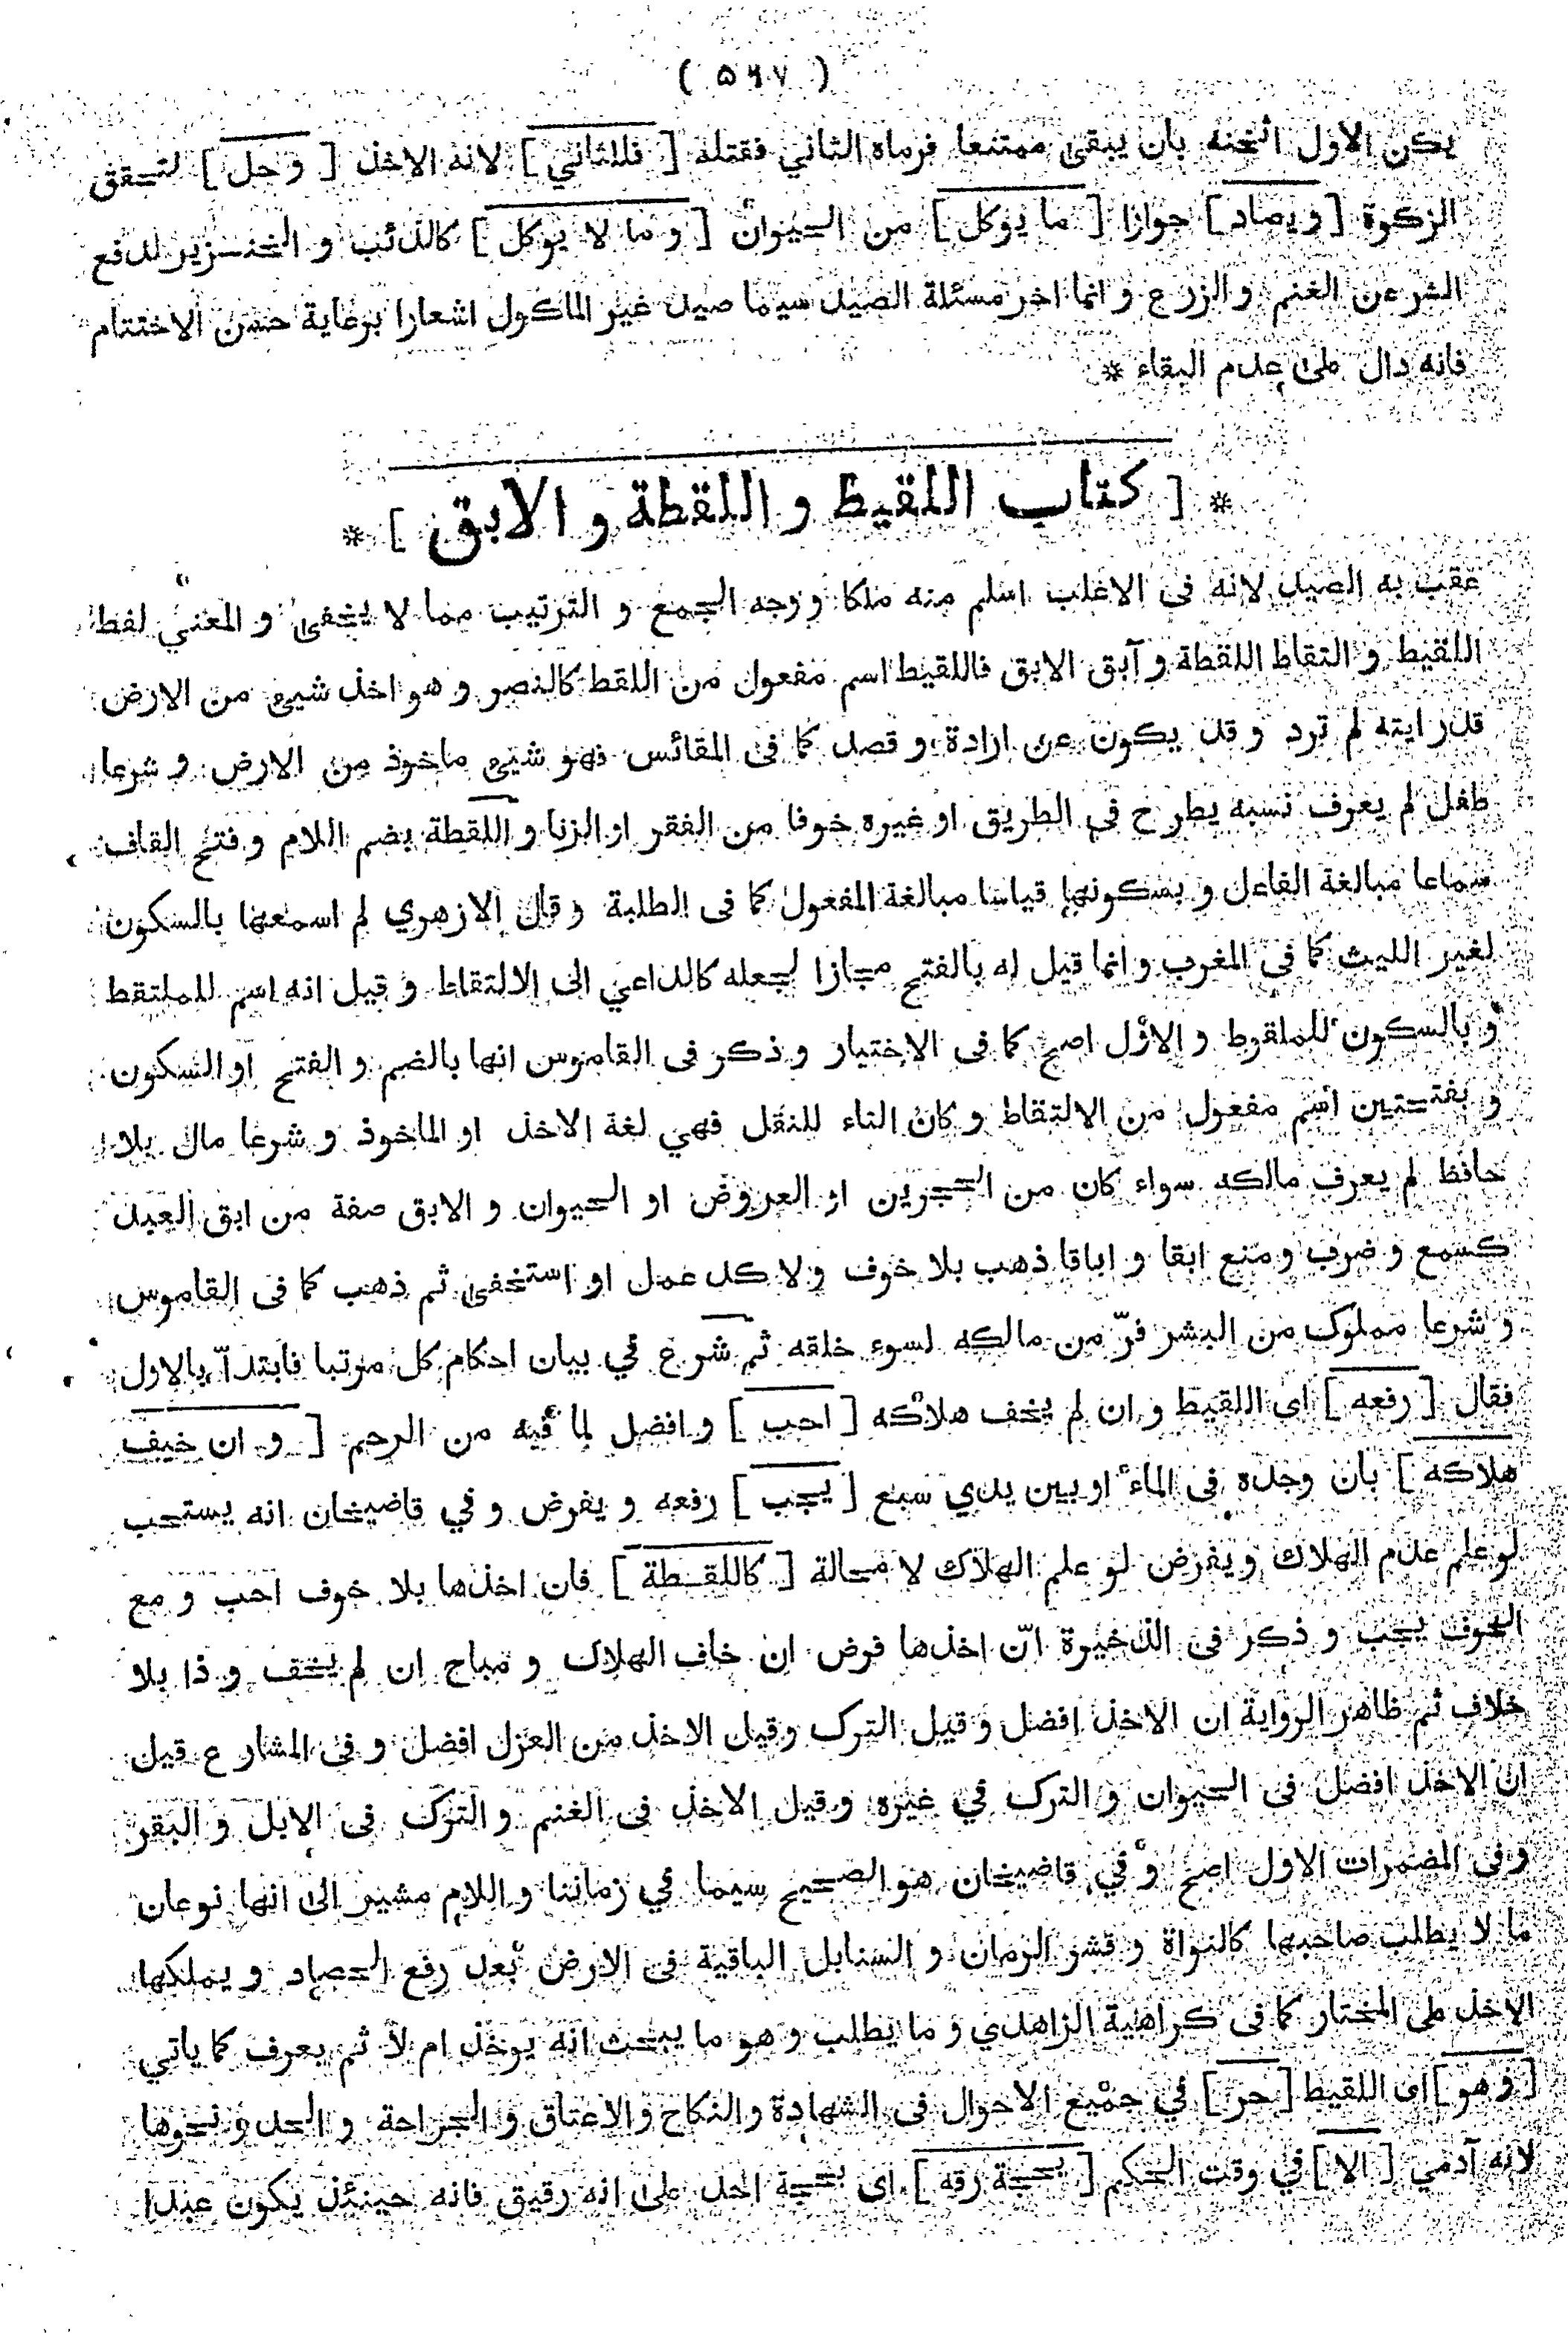 ( ٥٦٧ )
يكن الاول اثخنه بان يبقى ممتنعا فرماه الثاني فقتله [ فللثاني ] لانه الاخذ [ وحل ] لتحقق
الزكوة [ ويصاد ] جوازا [ ما يوكل ] من الحيوان [ و ما لا يوكل ] كالذئب و الخنزير لدفع
الشر عن الغنم والزرع و انما اخر مسئلة الصيد سيما صيد غير الماكول اشعارا برعاية حسن الاختتام
فانه دال على عدم البقاء *
* [ كتاب اللقيط و اللقطة و الابق ] *
عقب به الصيد لانه في الاغلب اسلم منه ملكا ووجه الجمع و الترتيب مما لا يخفى و المعنى لقط
اللقيط و التقاط اللقطة و آبق الابق فاللقيط اسم مفعول من اللقط كالنصر و هو اخذ شيئ من الارض
قد رايته لم ترد و قد يكون عن ارادة و قصد كما فى المقائس فهو شيئ ماخوذ من الارض و شرعا
طفل لم يعرف نسبه يطرح في الطريق او غيره خوفا من الفقر او الزنا و اللقطة بضم اللام و فتح القاف
سماعا مبالغة الفاعل و بسكونها قياسا مبالغة المفعول كما فى الطلبة و قال الازهري لم اسمعها بالسكون
لغير الليث كما فى المغرب و انما قيل له بالفتح مجازا لجعله كالداعي الى الالتقاط و قيل انه اسم للملتقط
و بالسكون للملقوط و الاول اصح كما فى الاختيار و ذكر فى القاموس انها بالضم و الفتح او السكون
و بفتحتين اسم مفعول من الالتقاط و كان التاء للنقل فهي لغة الاخذ او الماخوذ و شرعا مال بلا
حافظ لم يعرف مالكه سواء كان من الحجرين او العروض او الحيوان و الابق صفة من ابق العبد
كسمع و ضرب و منع ابقا و اباقا ذهب بلا خوف ولا كد عمل او استخفى ثم ذهب كما فى القاموس
و شرعا مملوك من البشر فرّ من مالكه لسوء خلقه ثم شرع في بيان احكام كل مرتبا فابتدأ بالاول
فقال [ رفعه ] اى اللقيط و ان لم يخف هلاكه [ احب ] و افضل لما فيه من الرحم [ و ان خيف
هلاكه ] بان وجده فى الماء او بين يدي سبع [ يجب ] رفعه و يفرض و في قاضيخان انه يستحب
لو علم عدم الهلاك ويفرض لو علم الهلاك لا محالة [ كاللقطة ] فان اخذها بلا خوف احب و مع
الخوف يجب و ذكر فى الذخيرة انّ اخذها فرض ان خاف الهلاك و مباح ان لم يخف و ذا بلا
خلاف ثم ظاهر الرواية ان الاخذ افضل و قيل الترك وقيل الاخذ من العزل افضل و فى المشارع قيل
ان الاخذ افضل فى الحيوان و الترك في غيره وقيل الاخذ فى الغنم و الترك فى الابل و البقر
وفى المضمرات الاول اصح و في قاضيخان هو الصحيح سيما في زماننا و اللام مشير الى انها نوعان
ما لا يطلب صاحبها كالنواة و قشر الرمان و السنابل الباقية فى الارض بعد رفع الحصاد و يملكها
الاخذ على المختار كما فى كراهية الزاهدي و ما يطلب و هو ما يبحث انه يوخذ ام لا ثم يعرف كما ياتي
[ و هو ] اى اللقيط [ حر ] في جميع الاحوال فى الشهادة والنكاح والاعتاق و الجراحة و الحد و نحوها
لانه آدمي [ الا ] في وقت الحكم [ بحجة رقه ] اى بحجة احد على انه رقيق فانه حينئذ يكون عبدا